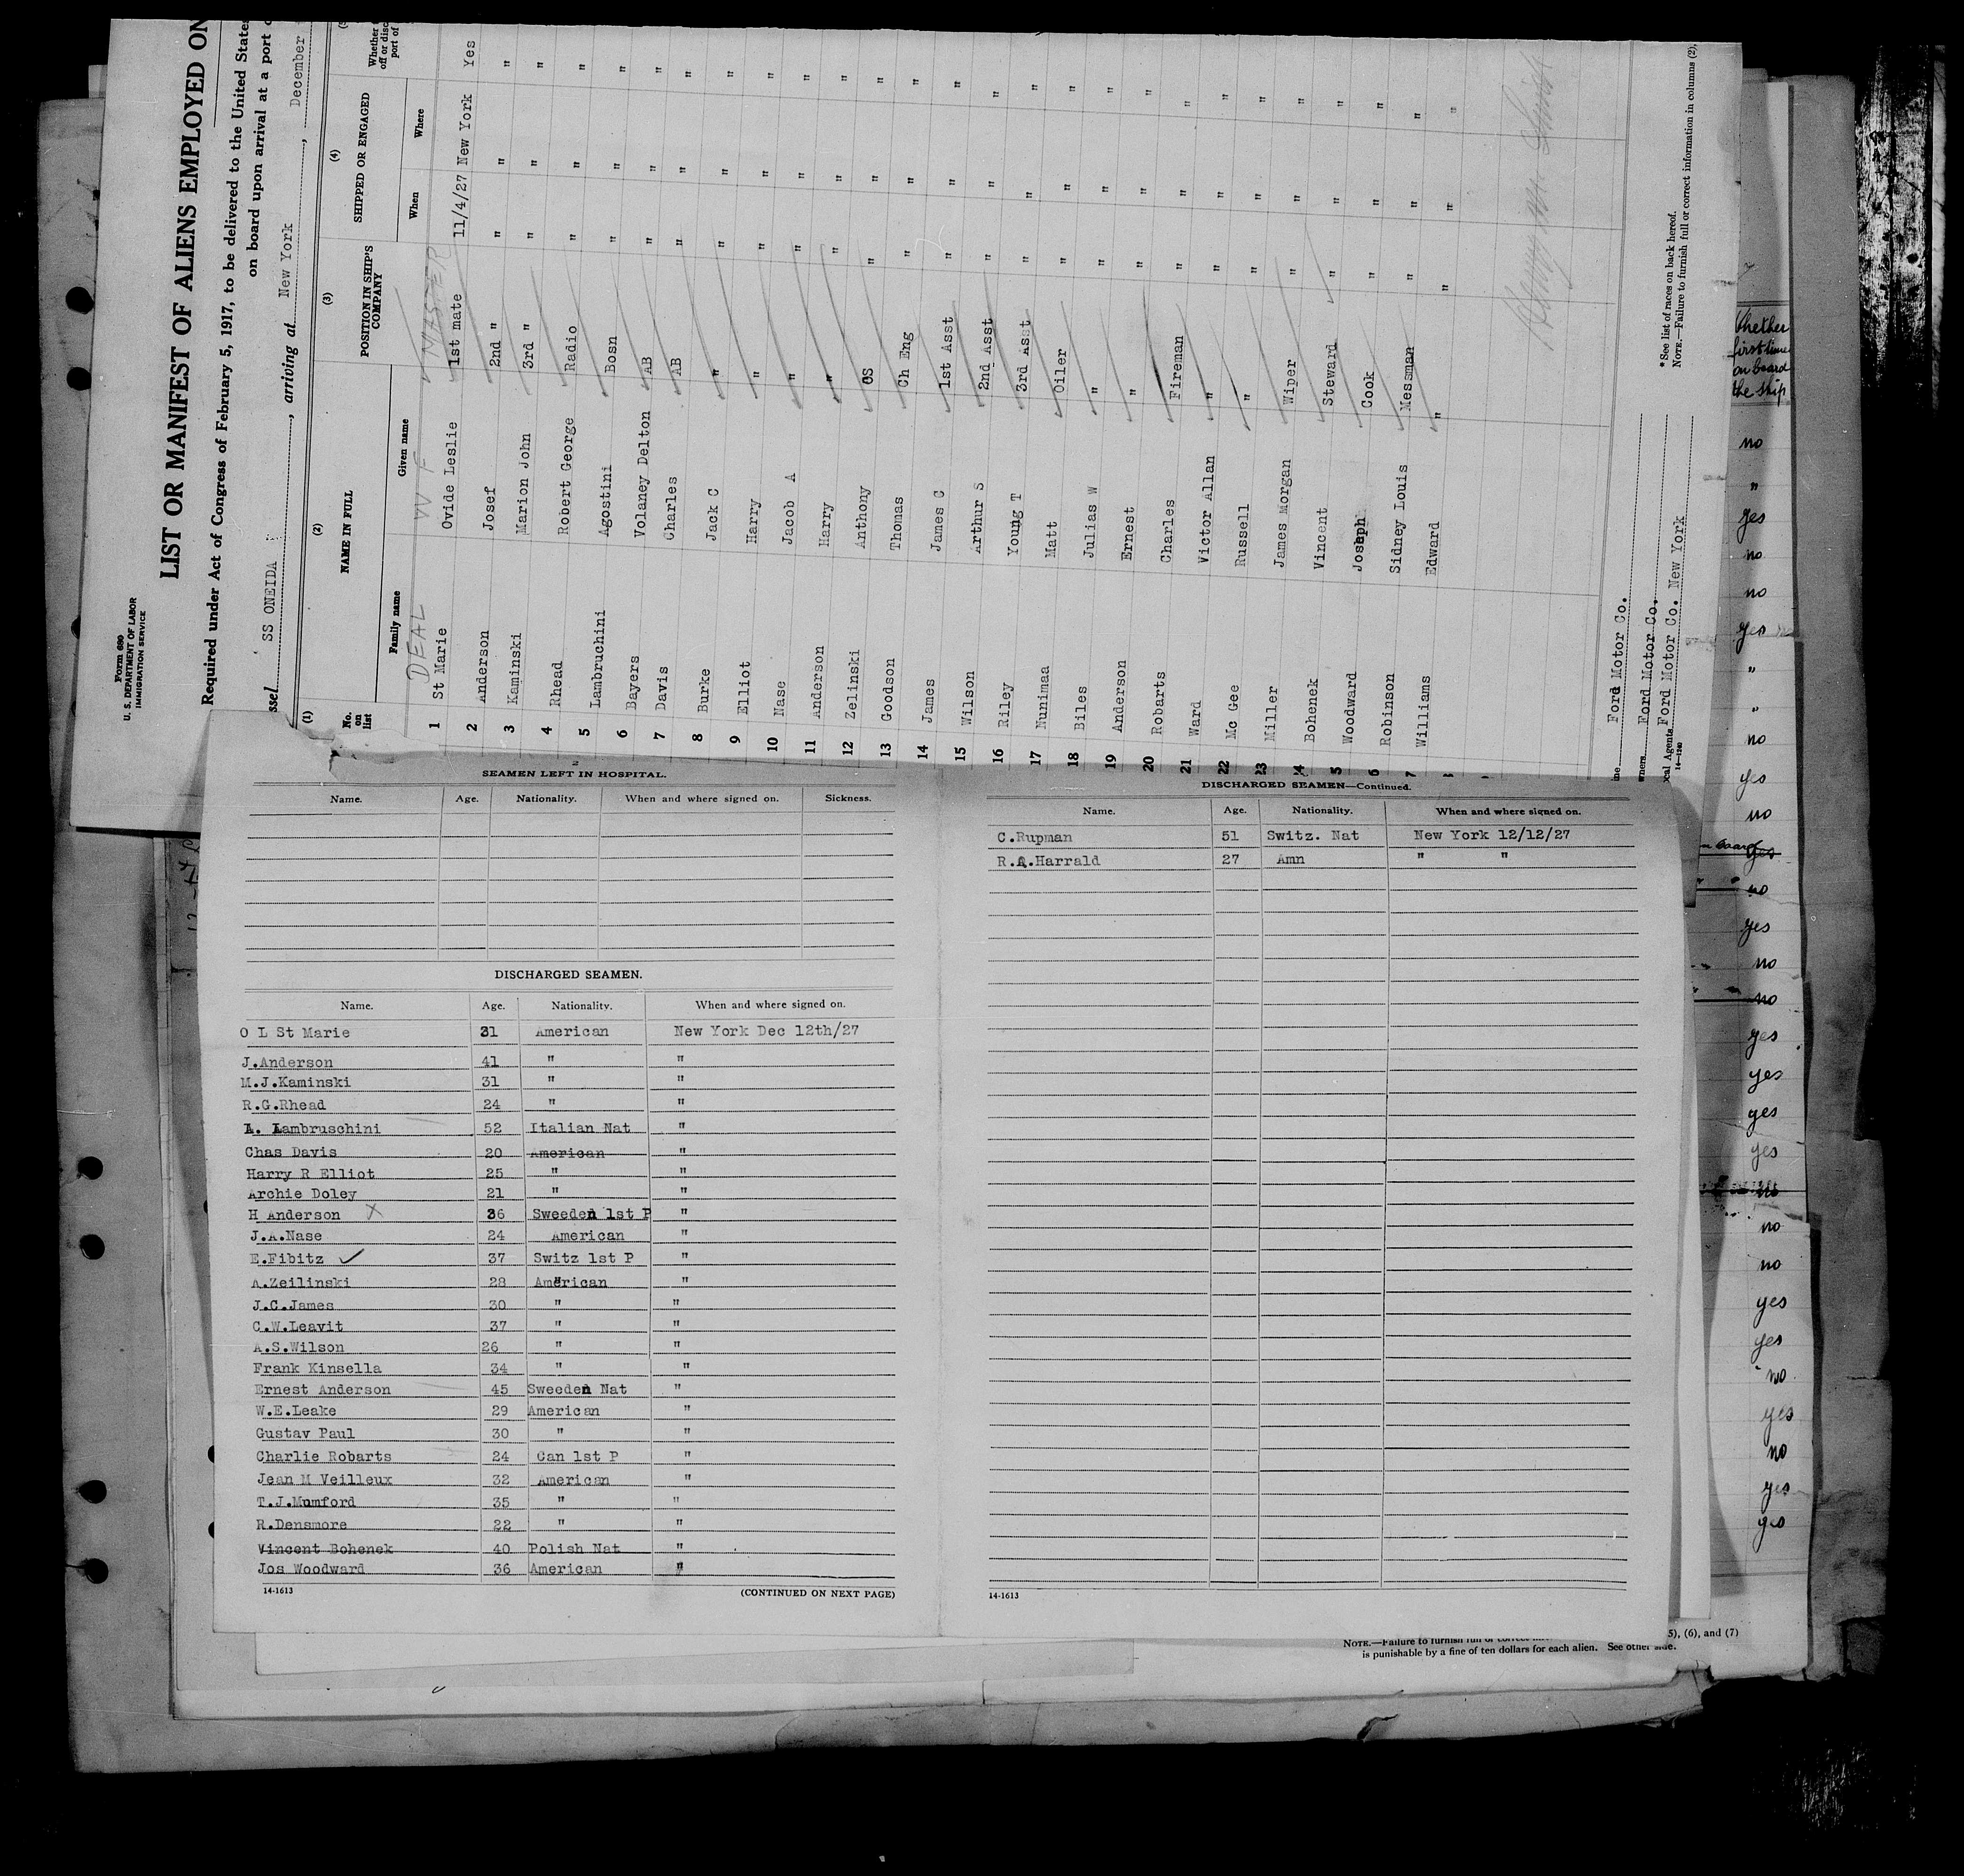 Form 680
U. S. DEPARTMENT OF LABOR
IMMIGRATION SERVICE
LIST OR MANIFEST OF ALIENS EMPLOYED ON
Required under Act of Congress of February 5, 1917, to be delivered to the United States
on board upon arrival at a port
ssel SS ONEIDA , arriving at New York , December
(1) (2) (3) (4)
No. on list NAME IN FULL POSITION IN SHIP'S COMPANY SHIPPED OR ENGAGED Whether
off or disc
port of
Family name Given name When Where
DEAL W F MASTER
1 St Marie Ovide Leslie 1st mate 11/4/27 New York Yes
2 Anderson Josef 2nd " " " "
3 Kaminski Marion John 3rd " " " "
4 Rhead Robert George Radio " " "
5 Lambruchini Agostini Bosn " " "
6 Bayers Volaney Delton AB " " "
7 Davis Charles AB " " "
8 Burke Jack C " " " "
9 Elliot Harry " " " "
10 Nase Jacob A " " " "
11 Anderson Harry " " " "
12 Zelinski Anthony OS " " "
13 Goodson Thomas Ch Eng " " "
14 James James C 1st Asst " " "
15 Wilson Arthur S 2nd Asst " " "
16 Riley Young T 3rd Asst " " "
17 Nunimaa Matt Oiler " " "
18 Biles Julias W " " " "
19 Anderson Ernest " " " "
20 Robarts Charles Fireman " " "
21 Ward Victor Allan " " " "
22 Mc Gee Russell " " " "
23 Miller James Morgan Wiper " " "
24 Bohenek Vincent Steward " " "
5 Woodward Joseph Cook " " "
6 Robinson Sidney Louis Messman " " "
7 Williams Edward " " " "
ine Ford Motor Co.
wners Ford Motor Co.
cal Agents Ford Motor Co. New York
14-1240
*See list of races on back hereof.
NOTE.—Failure to furnish full or correct information in columns (2),
SEAMEN LEFT IN HOSPITAL.
Name. Age. Nationality. When and where signed on. Sickness.
DISCHARGED SEAMEN.
Name. Age. Nationality. When and where signed on.
O L St Marie 31 American New York Dec 12th/27
J.Anderson 41 " "
M.J.Kaminski 31 " "
R.G.Rhead 24 " "
A. Lambruschini 52 Italian Nat "
Chas Davis 20 American "
Harry R Elliot 25 " "
Archie Doley 21 " "
H Anderson X 36 Sweeden 1st P "
J.A.Nase 24 American "
E.Fibitz ✓ 37 Switz 1st P "
A.Zeilinski 28 American "
J.C.James 30 " "
C.W.Leavit 37 " "
A.S.Wilson 26 " "
Frank Kinsella 34 " "
Ernest Anderson 45 Sweeden Nat "
W.E.Leake 29 American "
Gustav Paul 30 " "
Charlie Robarts 24 Can 1st P "
Jean M Veilleux 32 American "
T.J.Mumford 35 " "
R.Densmore 22 " "
Vincent Bohenek 40 Polish Nat "
Jos Woodward 36 American "
14-1613 (CONTINUED ON NEXT PAGE)
DISCHARGED SEAMEN—Continued.
Name. Age. Nationality. When and where signed on.
C.Rupman 51 Switz. Nat New York 12/12/27
R.A.Harrald 27 Amn " "
14-1613
Whether
first time
on board
the ship
no
"
yes
no
no
yes
"
"
no
yes
no
yes
no
yes
no
no
yes
yes
yes
yes
no
no
no
yes
yes
no
yes
no
yes
yes
5), (6), and (7)
NOTE.—Failure to furnish full or correct
is punishable by a fine of ten dollars for each alien. See other side.